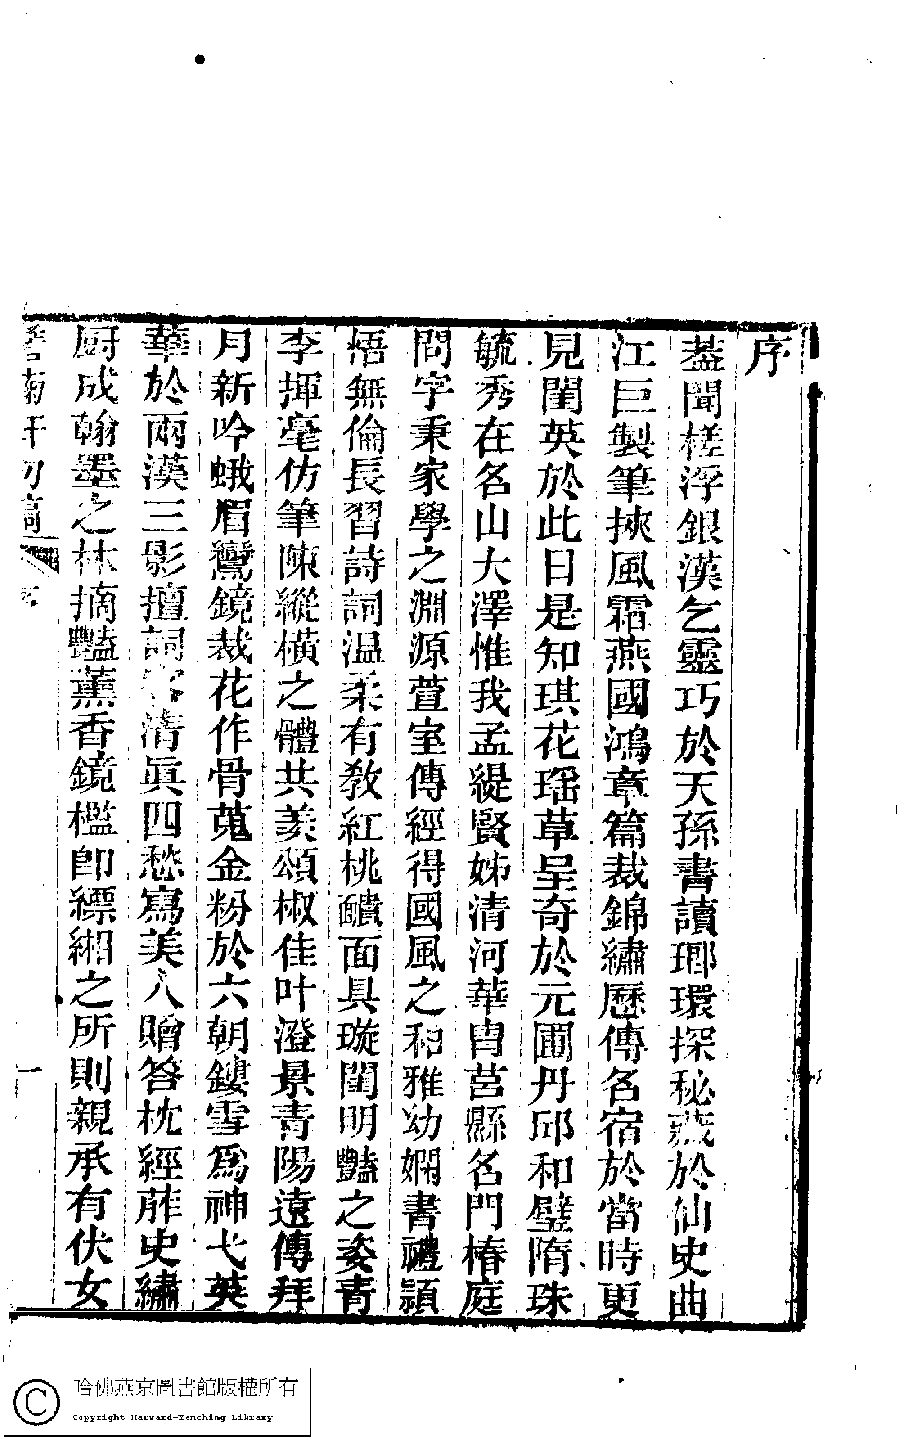 序
蓋聞槎浮銀漢乞靈巧於天孫書讀瑯環探秘蔵於仙史曲
江巨製筆挾風霜燕國鴻章篇裁錦繡歷傳名宿於當時更
見閨英於此日是知琪花瑶草呈奇於元圃丹邱和璧隋珠
毓秀在名山大澤惟我孟緹賢姊清河華胄莒縣名門椿庭
問字秉家學之淵源萱室傳經得國風之和雅幼嫻書禮穎
悟無倫長習詩詞温柔有教紅桃靧面具璇閨明豔之姿青
李揮毫仿筆陳縱横之體共羨頌椒佳叶澄景青陽遠傳拜
月新吟蛾眉鸞鏡裁花作骨蒐金粉於六朝鏤雪爲神弋英
華於兩漢三影擅詞客清眞四愁寫美人贈答枕經葄史繡
厨成翰墨之林摘豔薰香鏡檻卽縹緗之所則親承有伏女
澹菊軒初稿 序 一
哈佛燕京圖書館版權所有
Copyright Harvard-Yenching Library